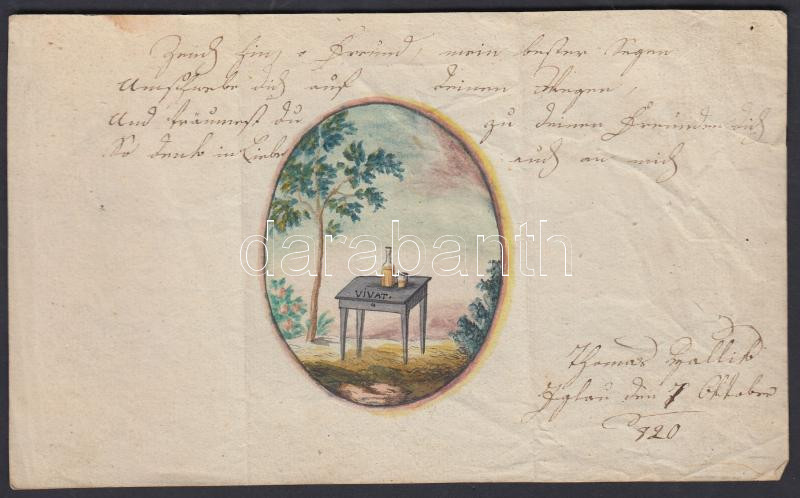 Zeuch hin, o Freund, mein bester Segen
Umschwebe dich auf deinen Wegen,
Und träumest du zu deinen Freunden dich
So denk in Liebe auch an mich
VIVAT.
darabanth
Thomas
Iglau den 7 Oktober
820